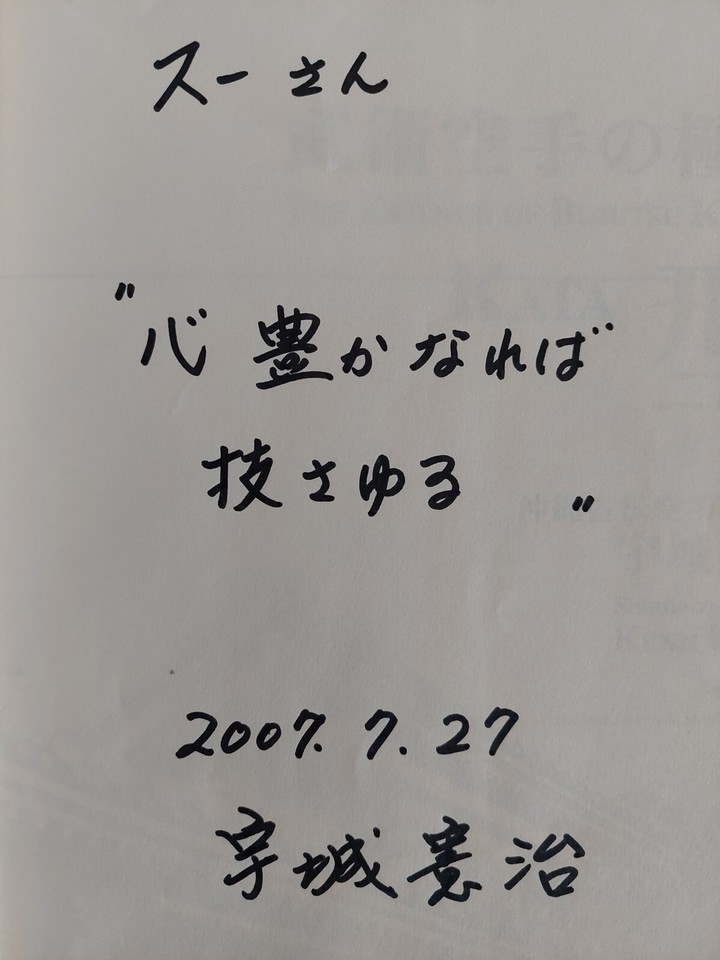 スーさん
"心豊かなれば
技さゆる"
2007.7.27
宇城憲治